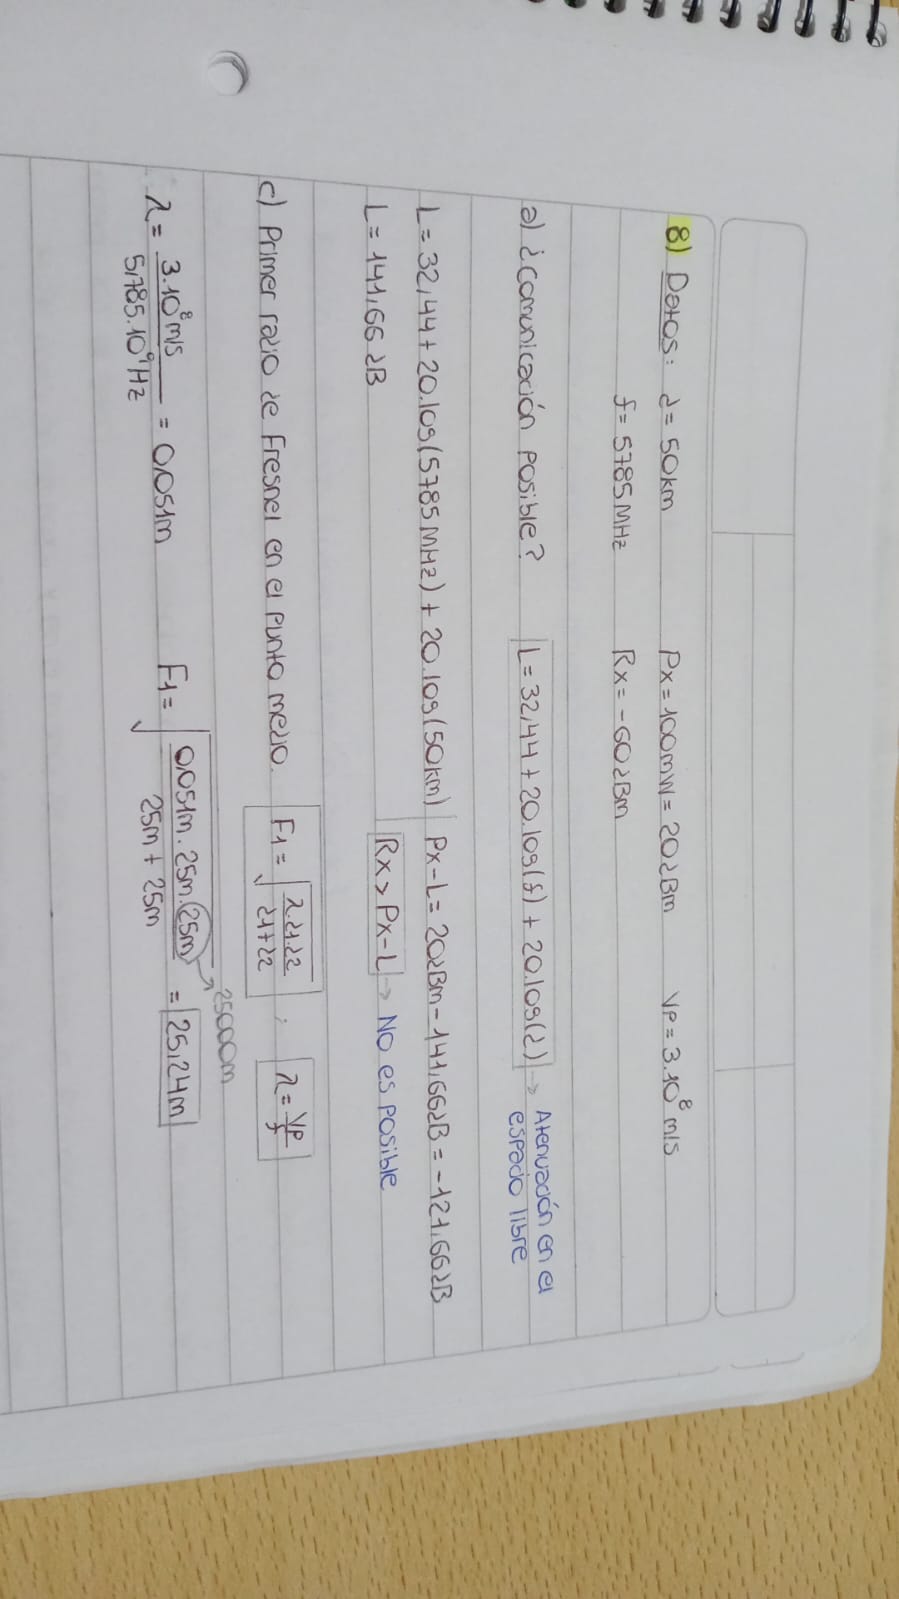 8) Datos: d= 50km Px=100mW= 20dBm VP= 3.10⁸ m/s
f= 5785 MHz Rx= -60dBm
a) ¿Comunicación posible? L= 32,44 + 20.log(f) + 20.log(d) → Atenuación en el espacio libre
L= 32,44+ 20.log(5785 MHz) + 20.log(50km) Px-L= 20dBm - 141,66dB = -121,66dB
L= 141,66 dB Rx > Px-L → NO es posible
c) Primer radio de Fresnel en el punto medio. F1= √(λ.d1.d2 / d1+d2) ; λ= VP/f
25000m
λ= 3.10⁸m/s / 5,785.10⁹Hz = 0,051m F1= √(0,051m. 25m. 25m / 25m + 25m) = 25,24m